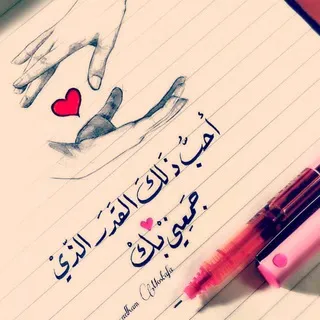 أحبُّ ذَلكَ القَدَرَ الذّيْ
جَمَعِنيْ بْكْ